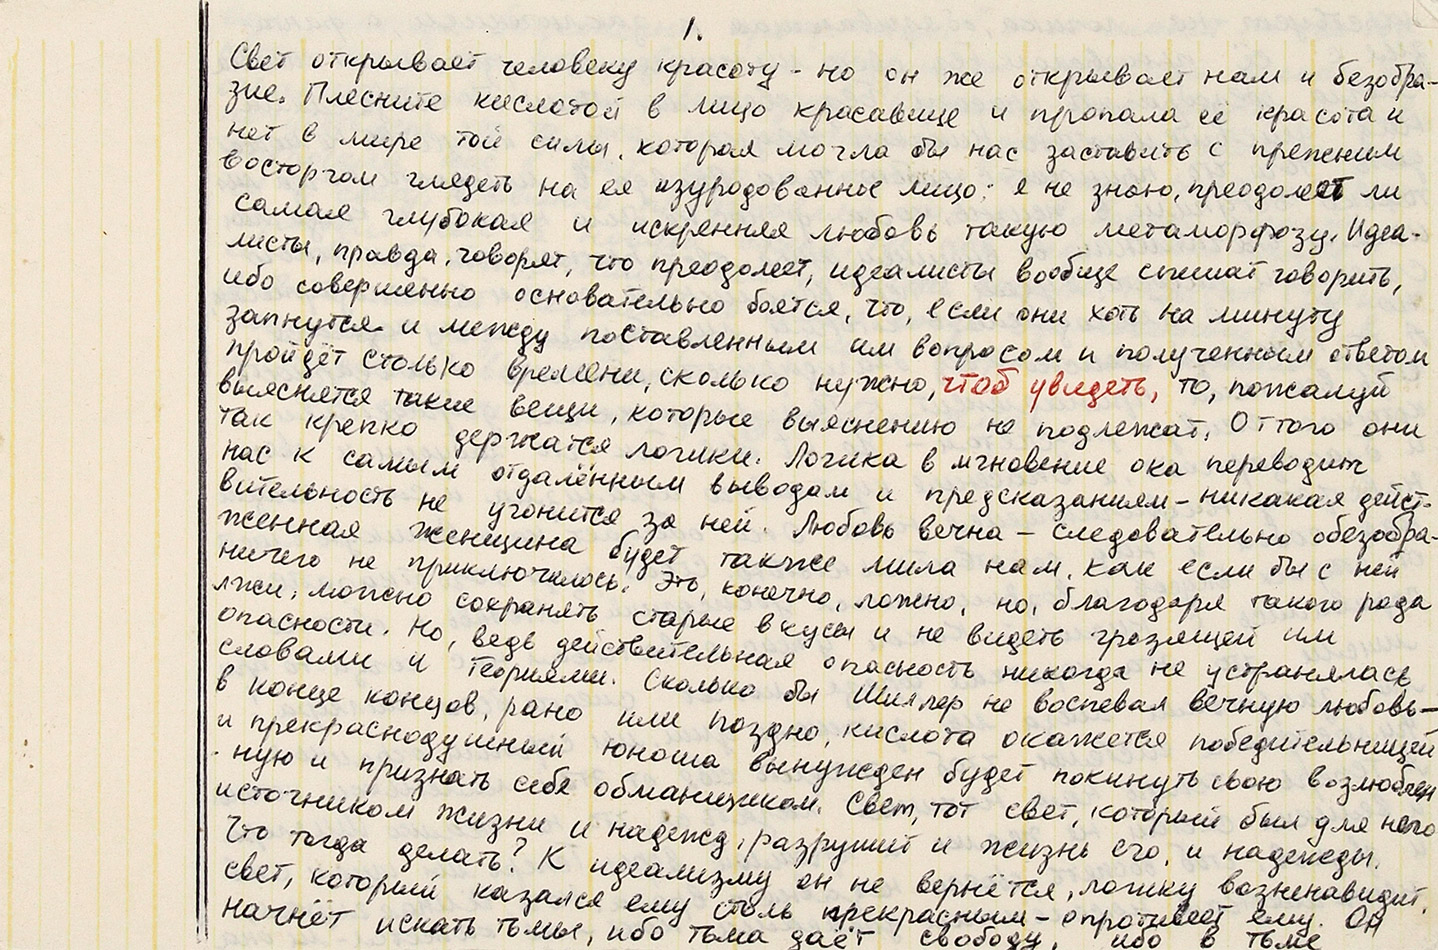 1.
Свет открывает человеку красоту - но он же открывает нам и безобра-
зие. Плесните кислотой в лицо красавице и пропала её красота и
нет в мире той силы, которая могла бы нас заставить с прежним
восторгом глядеть на ея изуродованное лицо; я не знаю, преодолеет ли
самая глубокая и искренняя любовь такую метаморфозу. Идеа-
листы, правда, говорят, что преодолеет, идеалисты вообще спешат говорить,
ибо совершенно основательно боятся, что, если они хоть на минуту
запнутся и между поставленным им вопросом и полученным ответом
пройдёт столько времени, сколько нужно, чтоб увидеть, то, пожалуй
выяснятся такие вещи, которые выяснению не подлежат. Оттого они
так крепко держатся логики. Логика в мгновение ока переводит
нас к самым отдалённым выводам и предсказаниям - никакая дейст-
вительность не угонится за ней. Любовь вечна - следовательно обезобра-
женная женщина будет также мила нам, как если бы с ней
ничего не приключилось. Это, конечно, ложно, но, благодаря такого рода
лжи, можно сохранять старые вкусы и не видеть грозящей им
опасности. Но, ведь действительная опасность никогда не устранялась
словами и теориями. Сколько бы Шиллер не воспевал вечную любовь -
в конце концов, рано или поздно, кислота окажется победительницей
и прекраснодушный юноша вынужден будет покинуть свою возлюблен
-ную и признать себя обманщиком. Свет, тот свет, который был для него
источником жизни и надежд, разрушит и жизнь его, и надежды.
Что тогда делать? К идеализму он не вернётся, логику возненавидит,
свет, который казался ему столь прекрасным - опротивеет ему. Он
начнёт искать тьмы, ибо тьма даёт свободу, ибо в тьме